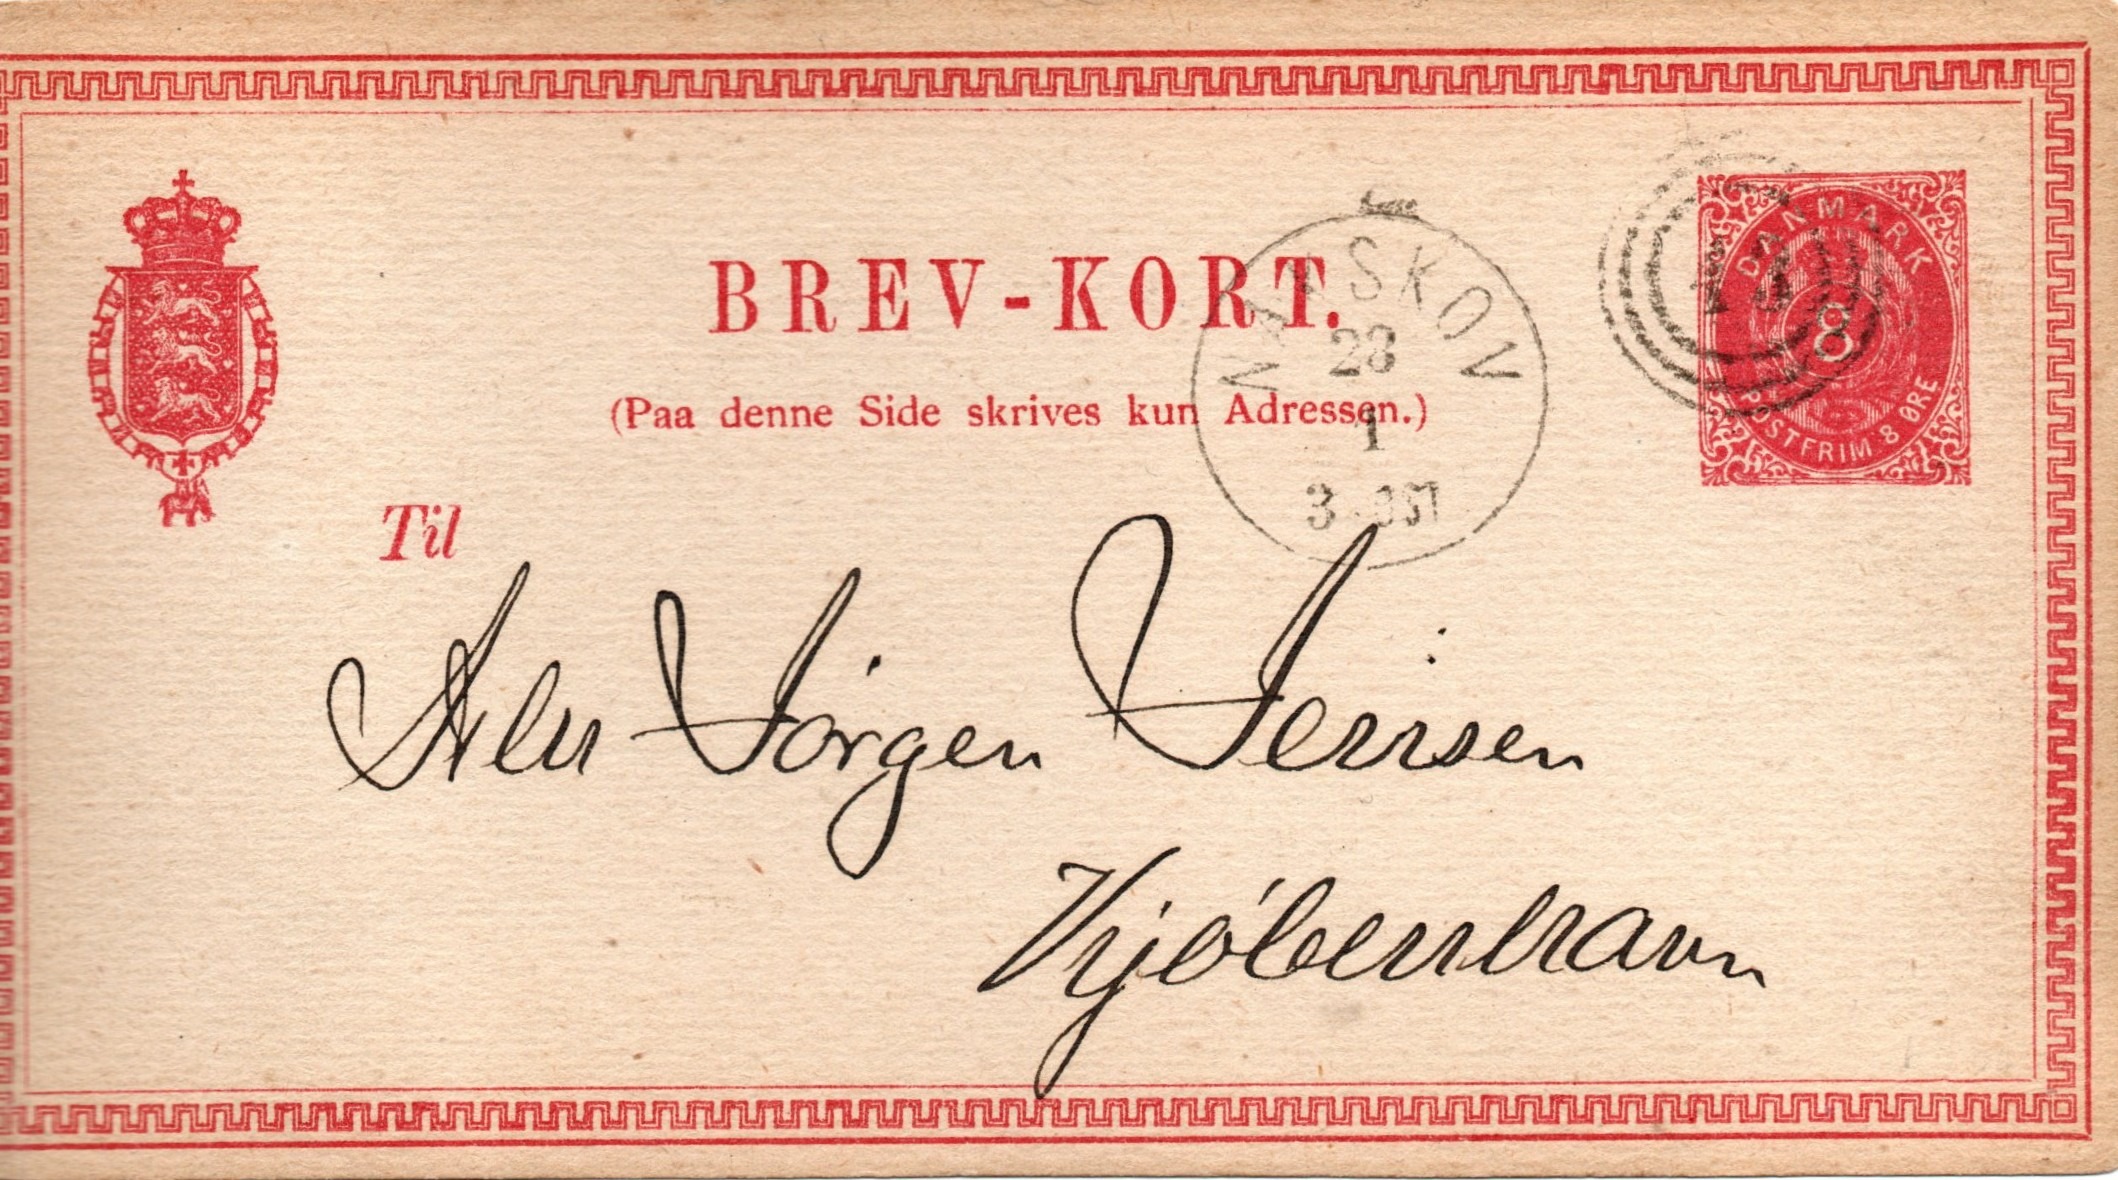 BREV-KORT.
(Paa denne Side skrives kun Adressen.)
DANMARK
8
POSTFRIM. 8 ØRE
NAKSKOV
28
1
3 POST
Til
Jørgen Jensen
Kjøbenhavn